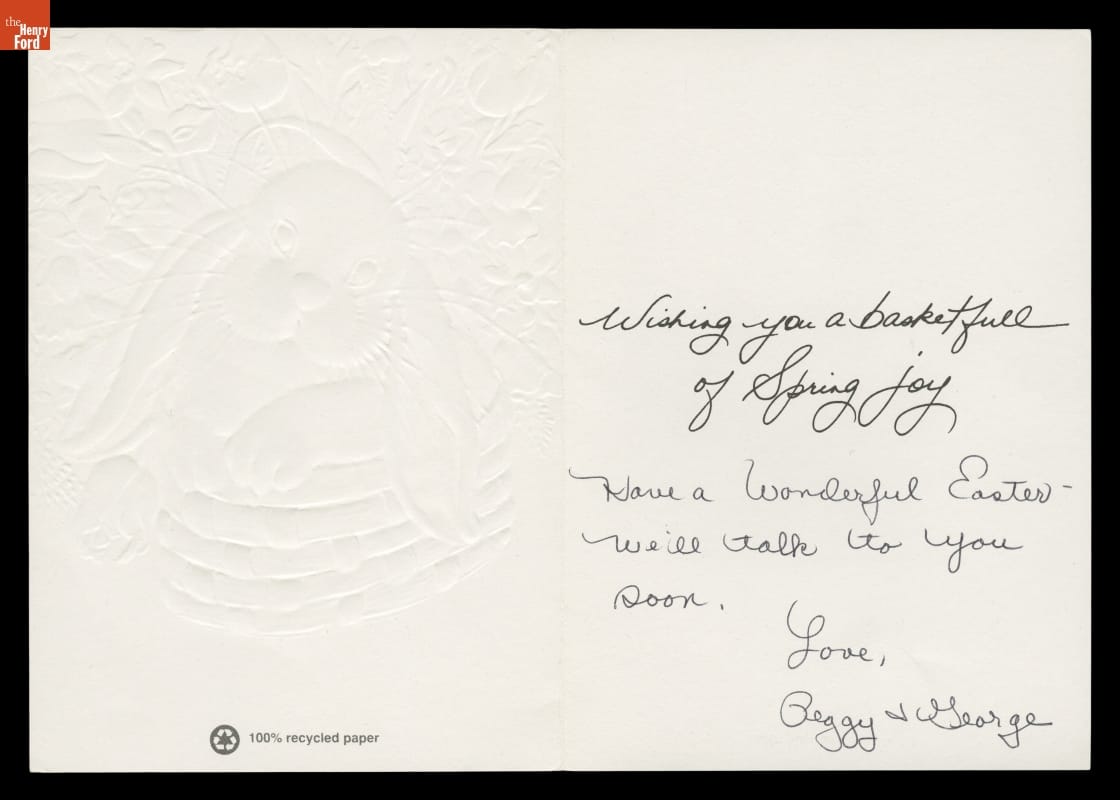 the
Henry
Ford
Wishing you a basketfull
of Spring joy
Have a Wonderful Easter-
we'll talk to you
soon.
Love,
Peggy & George
100% recycled paper